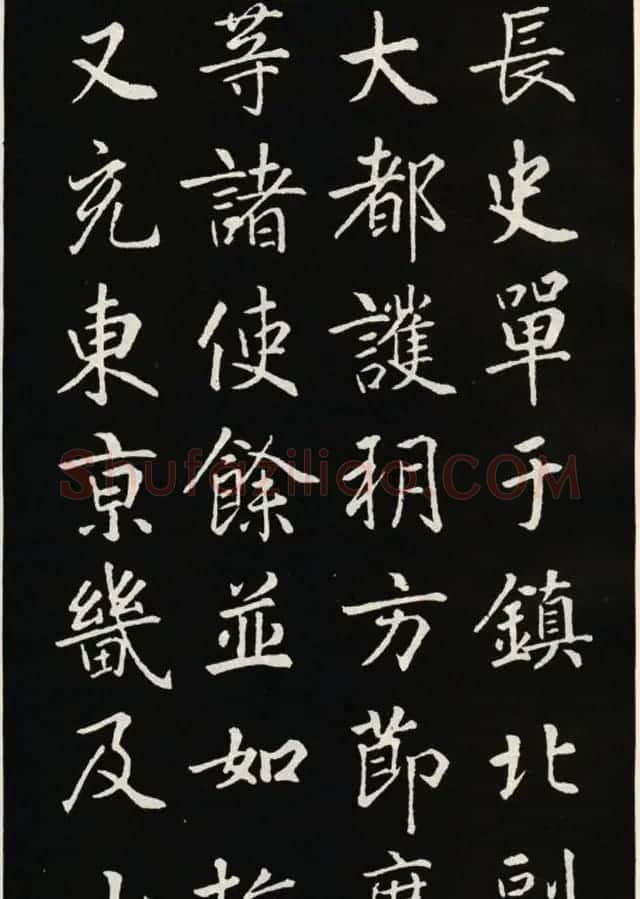 長史單于鎮北副
大都護朔方節度
等諸使餘並如故
又充東京畿及
Shufaziliao.COM